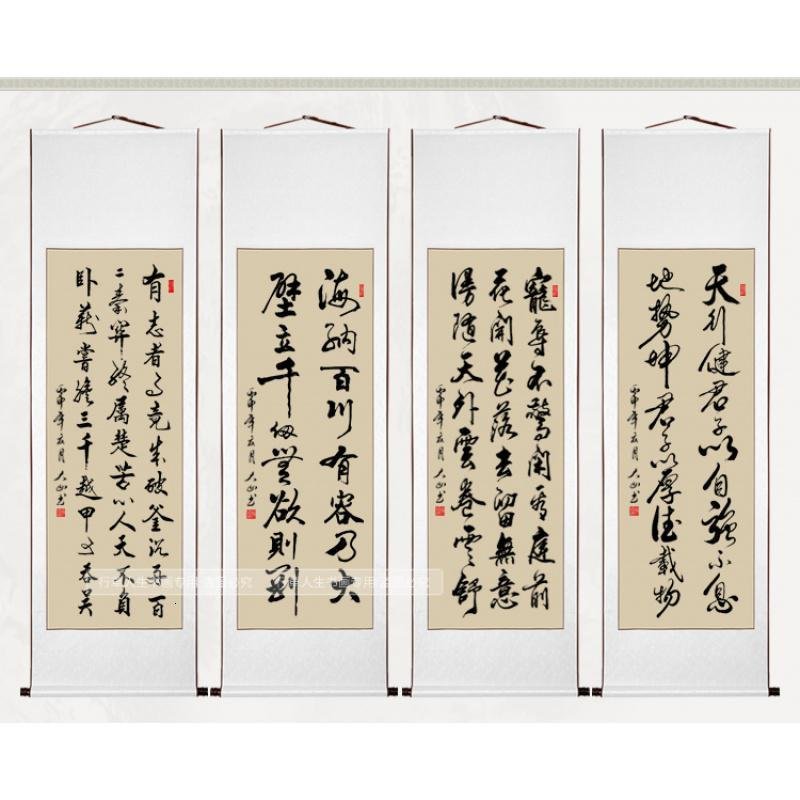 天行健君子以自強不息
地勢坤君子以厚德載物
丙申年玄月 大山书
寵辱不驚閑看庭前
花開花落去留無意
漫隨天外雲卷雲舒
丙申年玄月 大山书
海納百川有容乃大
壁立千仞無欲則剛
丙申年玄月 大山书
有志者事竟成破釜沉舟百
二秦關終屬楚苦心人天不負
卧薪嘗膽三千越甲可吞吴
丙申年玄月 大山书